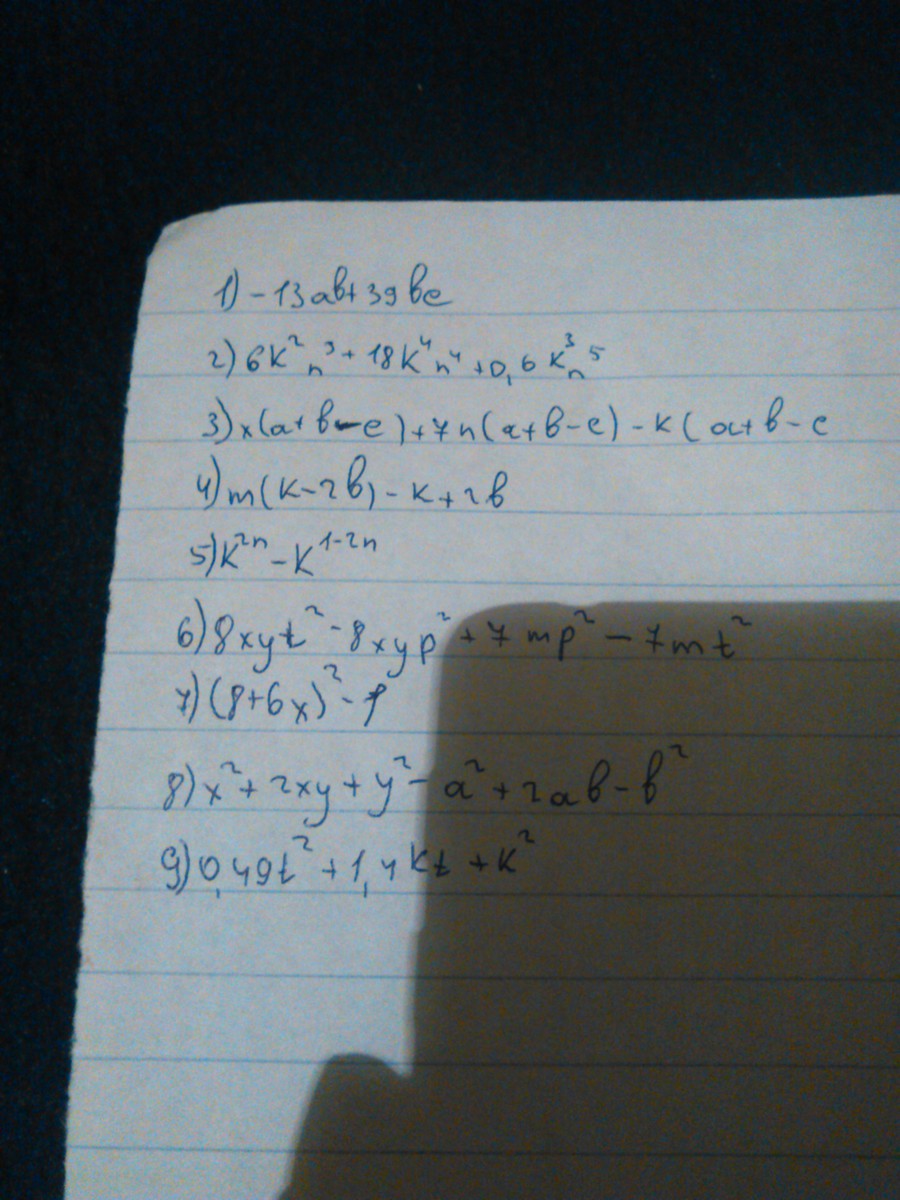 1) -13ав+39вс
2) 6k²n³ + 18k⁴n⁴ + 0,6k³n⁵
3) x(a+в-c)+7n(a+в-c)-k(a+в-c
4) m(k-2в)-k+2в
5) k²ⁿ-k¹⁻²ⁿ
6) 8xyt²-8xyp²+7mp²-7mt²
7) (8+6x)²-1
8) x²+2xy+y²-a²+2aв-в²
9) 0,49t²+1,4kt+k²